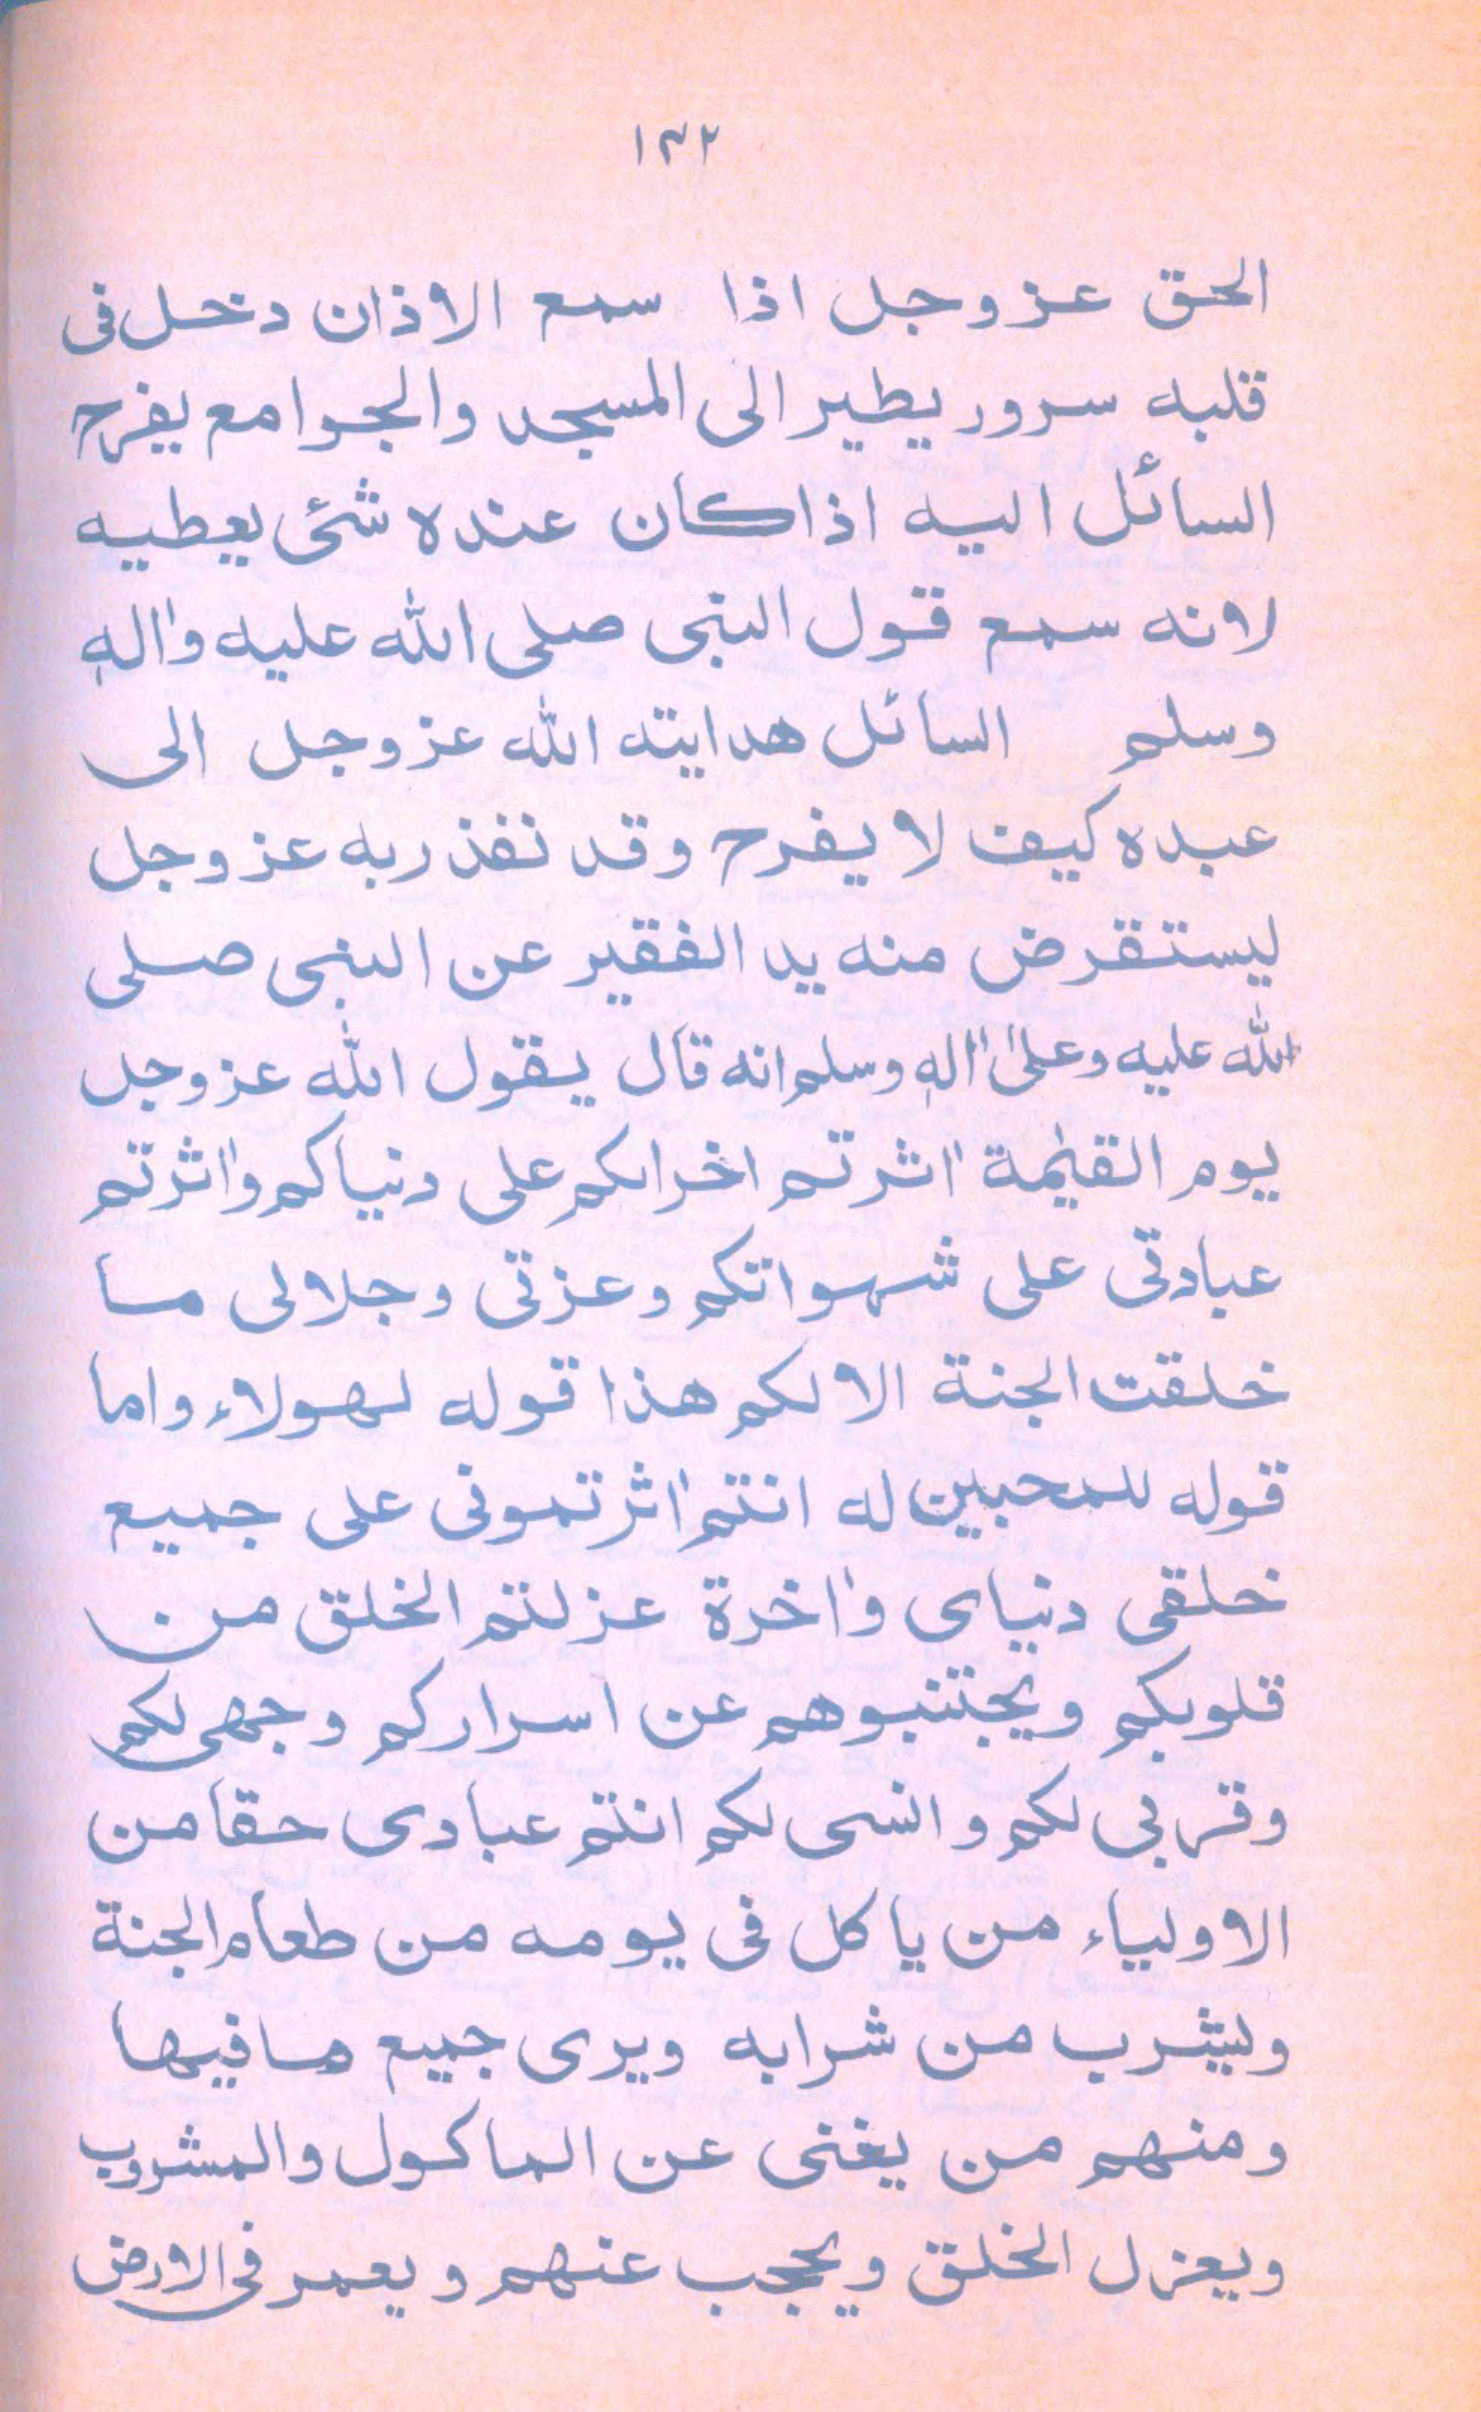 ١٣٢
الحق عزوجل اذا سمع الاذان دخل فى
قلبه سرور يطير الى المسجد والجوامع يفرح
السائل اليه اذا كان عنده شئ يعطيه
لانه سمع قول النبى صلى الله عليه واٰلهٖ
وسلم السائل هدايته الله عزوجل الى
عبده كيف لا يفرح وقد نفذ ربه عزوجل
ليستقرض منه يد الفقير عن النبى صلى
الله عليه وعلىٰ اٰلهٖ وسلم انه قال يقول الله عزوجل
يوم القيٰمة اٰثرتم اخراكم على دنياكم واٰثرتم
عبادتى على شهواتكم وعزتى وجلالى ما
خلقت الجنة الا لكم هذا قوله لهولاء واما
قوله للمحبين له انتم اٰثرتمونى على جميع
خلقى دنياى واٰخرة عزلتم الخلق من
قلوبكم ويجتنبوهم عن اسراركم وجهى لكم
وقربى لكم وانسى لكم انتم عبادى حقا من
الاولياء من ياكل فى يومه من طعام الجنة
وليشرب من شرابه ويرى جميع ما فيها
ومنهم من يغنى عن الماكول والمشروب
ويعزل الخلق ويحجب عنهم ويعمر فى الارض